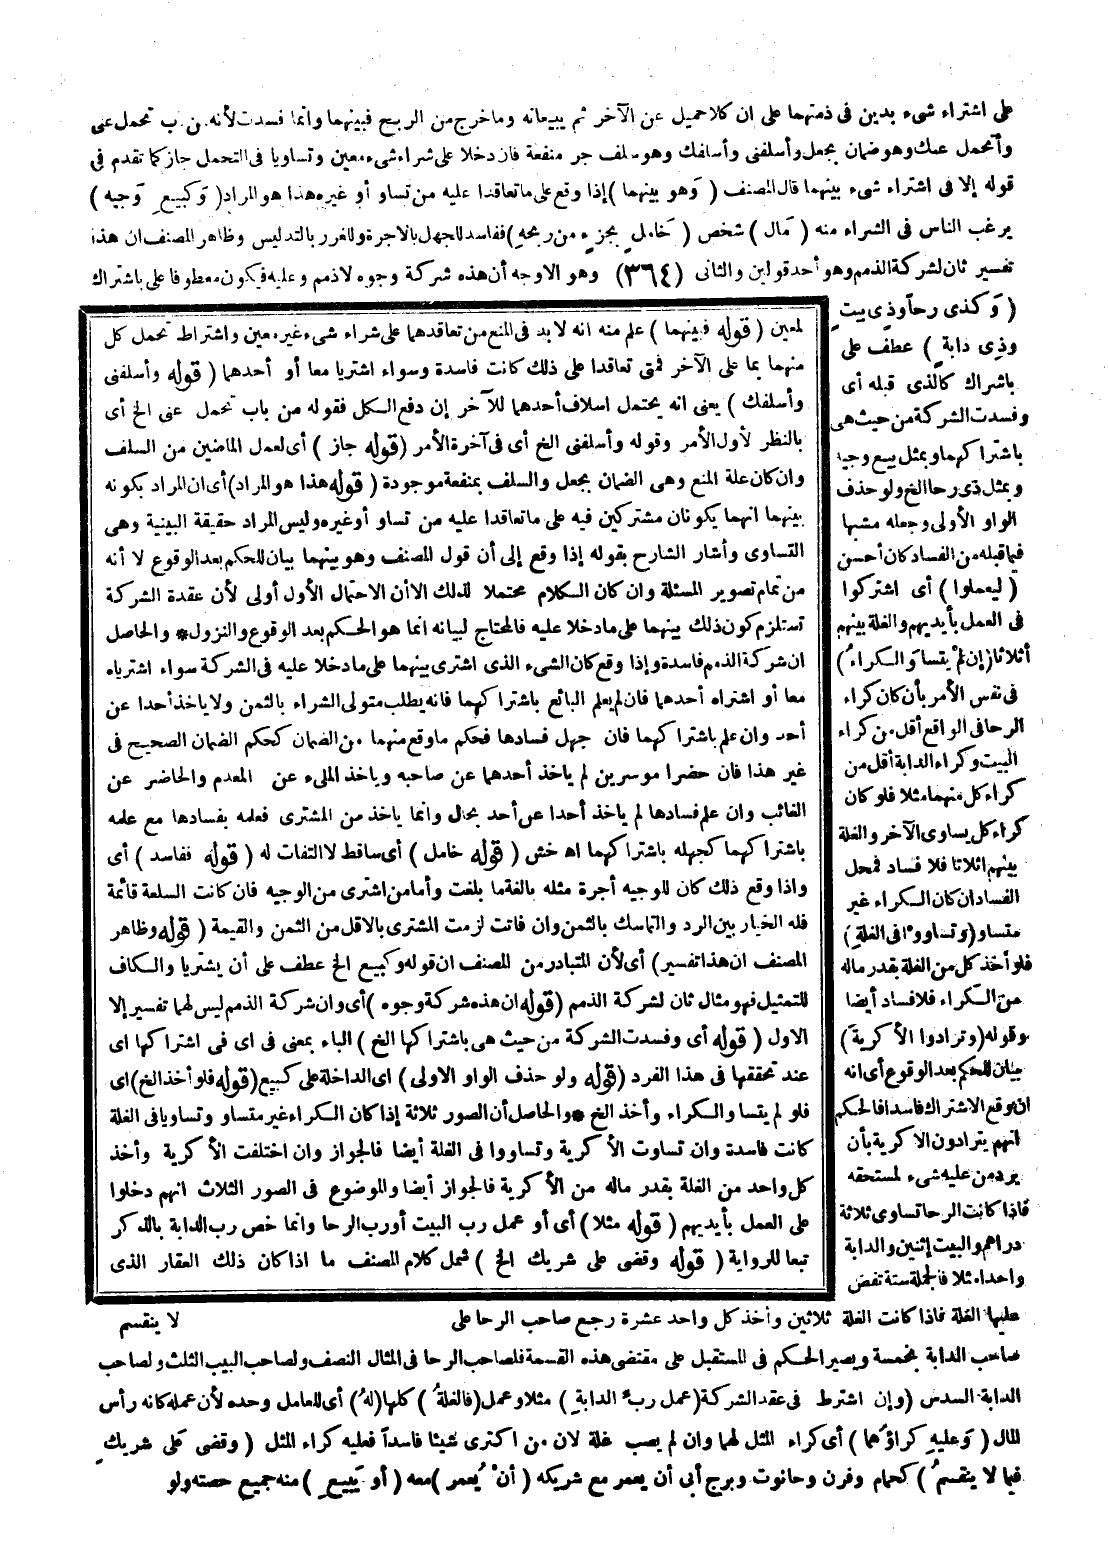 على اشتراء شىء بدين فى ذمتهما على ان كلا حميل عن الآخر ثم يبيعانه وماخرج من الربح فبينهما وانما فسدت لأنه من ب تحمل عنى
وأتحمل عنك وهو ضمان بجعل وأسلفنى وأسلفك وهو سلف جر منفعة فان دخلا على شراء شىء معين وتساويا فى التحمل جاز كما تقدم فى
قوله إلا فى اشتراء شىء بينهما قال المصنف ( وَهو بينهما ) إذا وقع على ما تعاقدا عليه من تساو أو غيره هذا هو المراد ( وَكبيعِ وَجيه )
يرغب الناس فى الشراء منه ( مَال ) شخص ( خَامل بجزءٍ من ربحهِ ) ففاسد للجهل بالاجرة وللغرر بالتدليس وظاهر المصنف ان هذا
تفسير ثان لشركة الذمم وهو أحد قولين والثانى (٣٦٤) وهو الاوجه أن هذه شركة وجوه لاذمم وعليه فيكون معطوفا على باشتراك
( وَكذى رحاً وذِى بيتٍ
وذِى دابةٍ ) عطف على
باشراك كالذى قبله أى
وفسدت الشركة من حيث هى
باشتراكهما وبمثل بيع وجيه
وبمثل ذى رحا الخ ولو حذف
الواو الأولى وجعله مشبها
فيما قبله من الفساد كان أحسن
( ليعملوا ) أى اشتركوا
فى العمل بأيديهم والغلة بينهم
أثلاثا ( إن لمْ يتساوَ الكراءُ )
فى نفس الأمر بأن كان كراء
الرحا فى الواقع أقل من كراء
البيت وكراء الدابة أقل من
كراء كل منهما مثلا فلو كان
كراء كل يساوى الآخر والغلة
بينهم اثلاثا فلا فساد فمحل
الفساد ان كان الكراء غير
متساو ( وتساووْا فى الغلةِ )
فلو أخذ كل من الغلة بقدر ماله
من الكراء فلا فساد أيضا
وقوله ( وترادوا الأكريةَ )
بيان للحكم بعد الوقوع أى انه
ان وقع الاشتراك فاسدا فالحكم
انهم يترادون الاكرية بأن
يرد من عليه شىء لمستحقه
فاذا كانت الرحا تساوى ثلاثة
دراهم والبيت إثنين والدابة
واحدا مثلا فالجملة ستة تفض
لمعين ( قوله فبينهما ) علم منه انه لابد فى المنع من تعاقدهما على شراء شىء غير معين واشتراط تحمل كل
منهما بما على الآخر فمتى تعاقدا على ذلك كانت فاسدة وسواء اشتريا معا أو أحدهما ( قوله وأسلفنى
وأسلفك ) يعنى انه يحتمل اسلاف أحدهما للآخر إن دفع الكل فقوله من باب تحمل عنى الخ أى
بالنظر لأول الأمر وقوله وأسلفنى الخ أى فى آخرة الأمر ( قوله جاز ) أى لعمل الماضين من السلف
وان كان علة المنع وهى الضمان بجعل والسلف بمنفعة موجودة ( قوله هذا هو المراد ) أى ان المراد بكونه
بينهما انهما يكونان مشتركين فيه على ما تعاقدا عليه من تساو أو غيره وليس المراد حقيقة البينية وهى
التساوى وأشار الشارح بقوله إذا وقع إلى أن قول المصنف وهو بينهما بيان للحكم بعد الوقوع لا أنه
من تمام تصوير المسئلة وان كان الكلام محتملا لذلك الا أن الاحتمال الأول أولى لأن عقدة الشركة
تستلزم كون ذلك بينهما على ما دخلا عليه فالمحتاج لبيانه انما هو الحكم بعد الوقوع والنزول * والحاصل
ان شركة الذمم فاسدة وإذا وقع كان الشىء الذى اشترى بينهما على ما دخلا عليه فى الشركة سواء اشترياه
معا أو اشتراه أحدهما فان لم يعلم البائع باشتراكهما فانه يطلب متولى الشراء بالثمن ولا ياخذ أحدا عن
أحد وان علم باشتراكهما فان جهل فسادها فحكم ما وقع منهما من الضمان كحكم الضمان الصحيح فى
غير هذا فان حضرا موسرين لم ياخذ أحدهما عن صاحبه وياخذ الملىء عن المعدم والحاضر عن
الغائب وان علم فسادها لم ياخذ أحدا عن أحد بحال وانما ياخذ من المشترى فعلمه بفسادها مع علمه
باشتراكهما كجهله باشتراكهما اه خش ( قوله خامل ) أى ساقط لا التفات له ( قوله ففاسد ) أى
واذا وقع ذلك كان للوجيه أجرة مثله بالغة ما بلغت وأما من اشترى من الوجيه فان كانت السلعة قائمة
فله الخيار بين الرد والتماسك بالثمن وان فاتت لزمت المشترى بالاقل من الثمن والقيمة ( قوله وظاهر
المصنف ان هذا تفسير ) أى لأن المتبادر من المصنف ان قوله وكبيع الخ عطف على أن يشتريا والكاف
للتمثيل فهو مثال ثان لشركة الذمم ( قوله ان هذه شركة وجوه ) أى وان شركة الذمم ليس لهما تفسير إلا
الاول ( قوله أى وفسدت الشركة من حيث هى باشتراكها الخ ) الباء بمعنى فى اى فى اشتراكها اى
عند تحققها فى هذا الفرد ( قوله ولو حذف الواو الاولى ) اى الداخلة على كبيع ( قوله فلو أخذ الخ ) اى
فلو لم يتساو الكراء وأخذ الخ * والحاصل أن الصور ثلاثة إذا كان الكراء غير متساو وتساويا فى الغلة
كانت فاسدة وان تساوت الأكرية وتساووا فى الغلة أيضا فالجواز وان اختلفت الأكرية وأخذ
كل واحد من الغلة بقدر ماله من الأكرية فالجواز أيضا والموضوع فى الصور الثلاث انهم دخلوا
على العمل بأيديهم ( قوله مثلا ) أى أو عمل رب البيت أو رب الرحا وانما خص رب الدابة بالذكر
تبعا للرواية ( قوله وقضى على شريك الخ ) شمل كلام المصنف ما اذا كان ذلك العقار الذى
لا ينقسم
عليها الغلة فاذا كانت الغلة ثلاثين وأخذ كل واحد عشرة رجع صاحب الرحا على
صاحب الدابة بخمسة ويصير الحكم فى المستقبل على مقتضى هذه القسمة فلصاحب الرحا فى المثال النصف ولصاحب البيت الثلث ولصاحب
الدابة السدس ( وإن اشترط فى عقد الشركة ( عمل ربِّ الدابةِ ) مثلا وعمل ( فالغلةُ ) كلها ( لهُ ) أى للعامل وحده لأن عمله كانه رأس
المال ( وَعليهِ كراؤُهما ) أى كراء المثل لهما وان لم يصب غلة لان من اكترى شيئا فاسدا فعليه كراء المثل ( وقضى عَلى شريكٍ
فيما لا ينقسمُ ) كحمام وفرن وحانوت وبرج أبى أن يعمر مع شريكه ( أنْ يُعمر ) معه ( أو يَبيع ) منه جميع حصته ولو